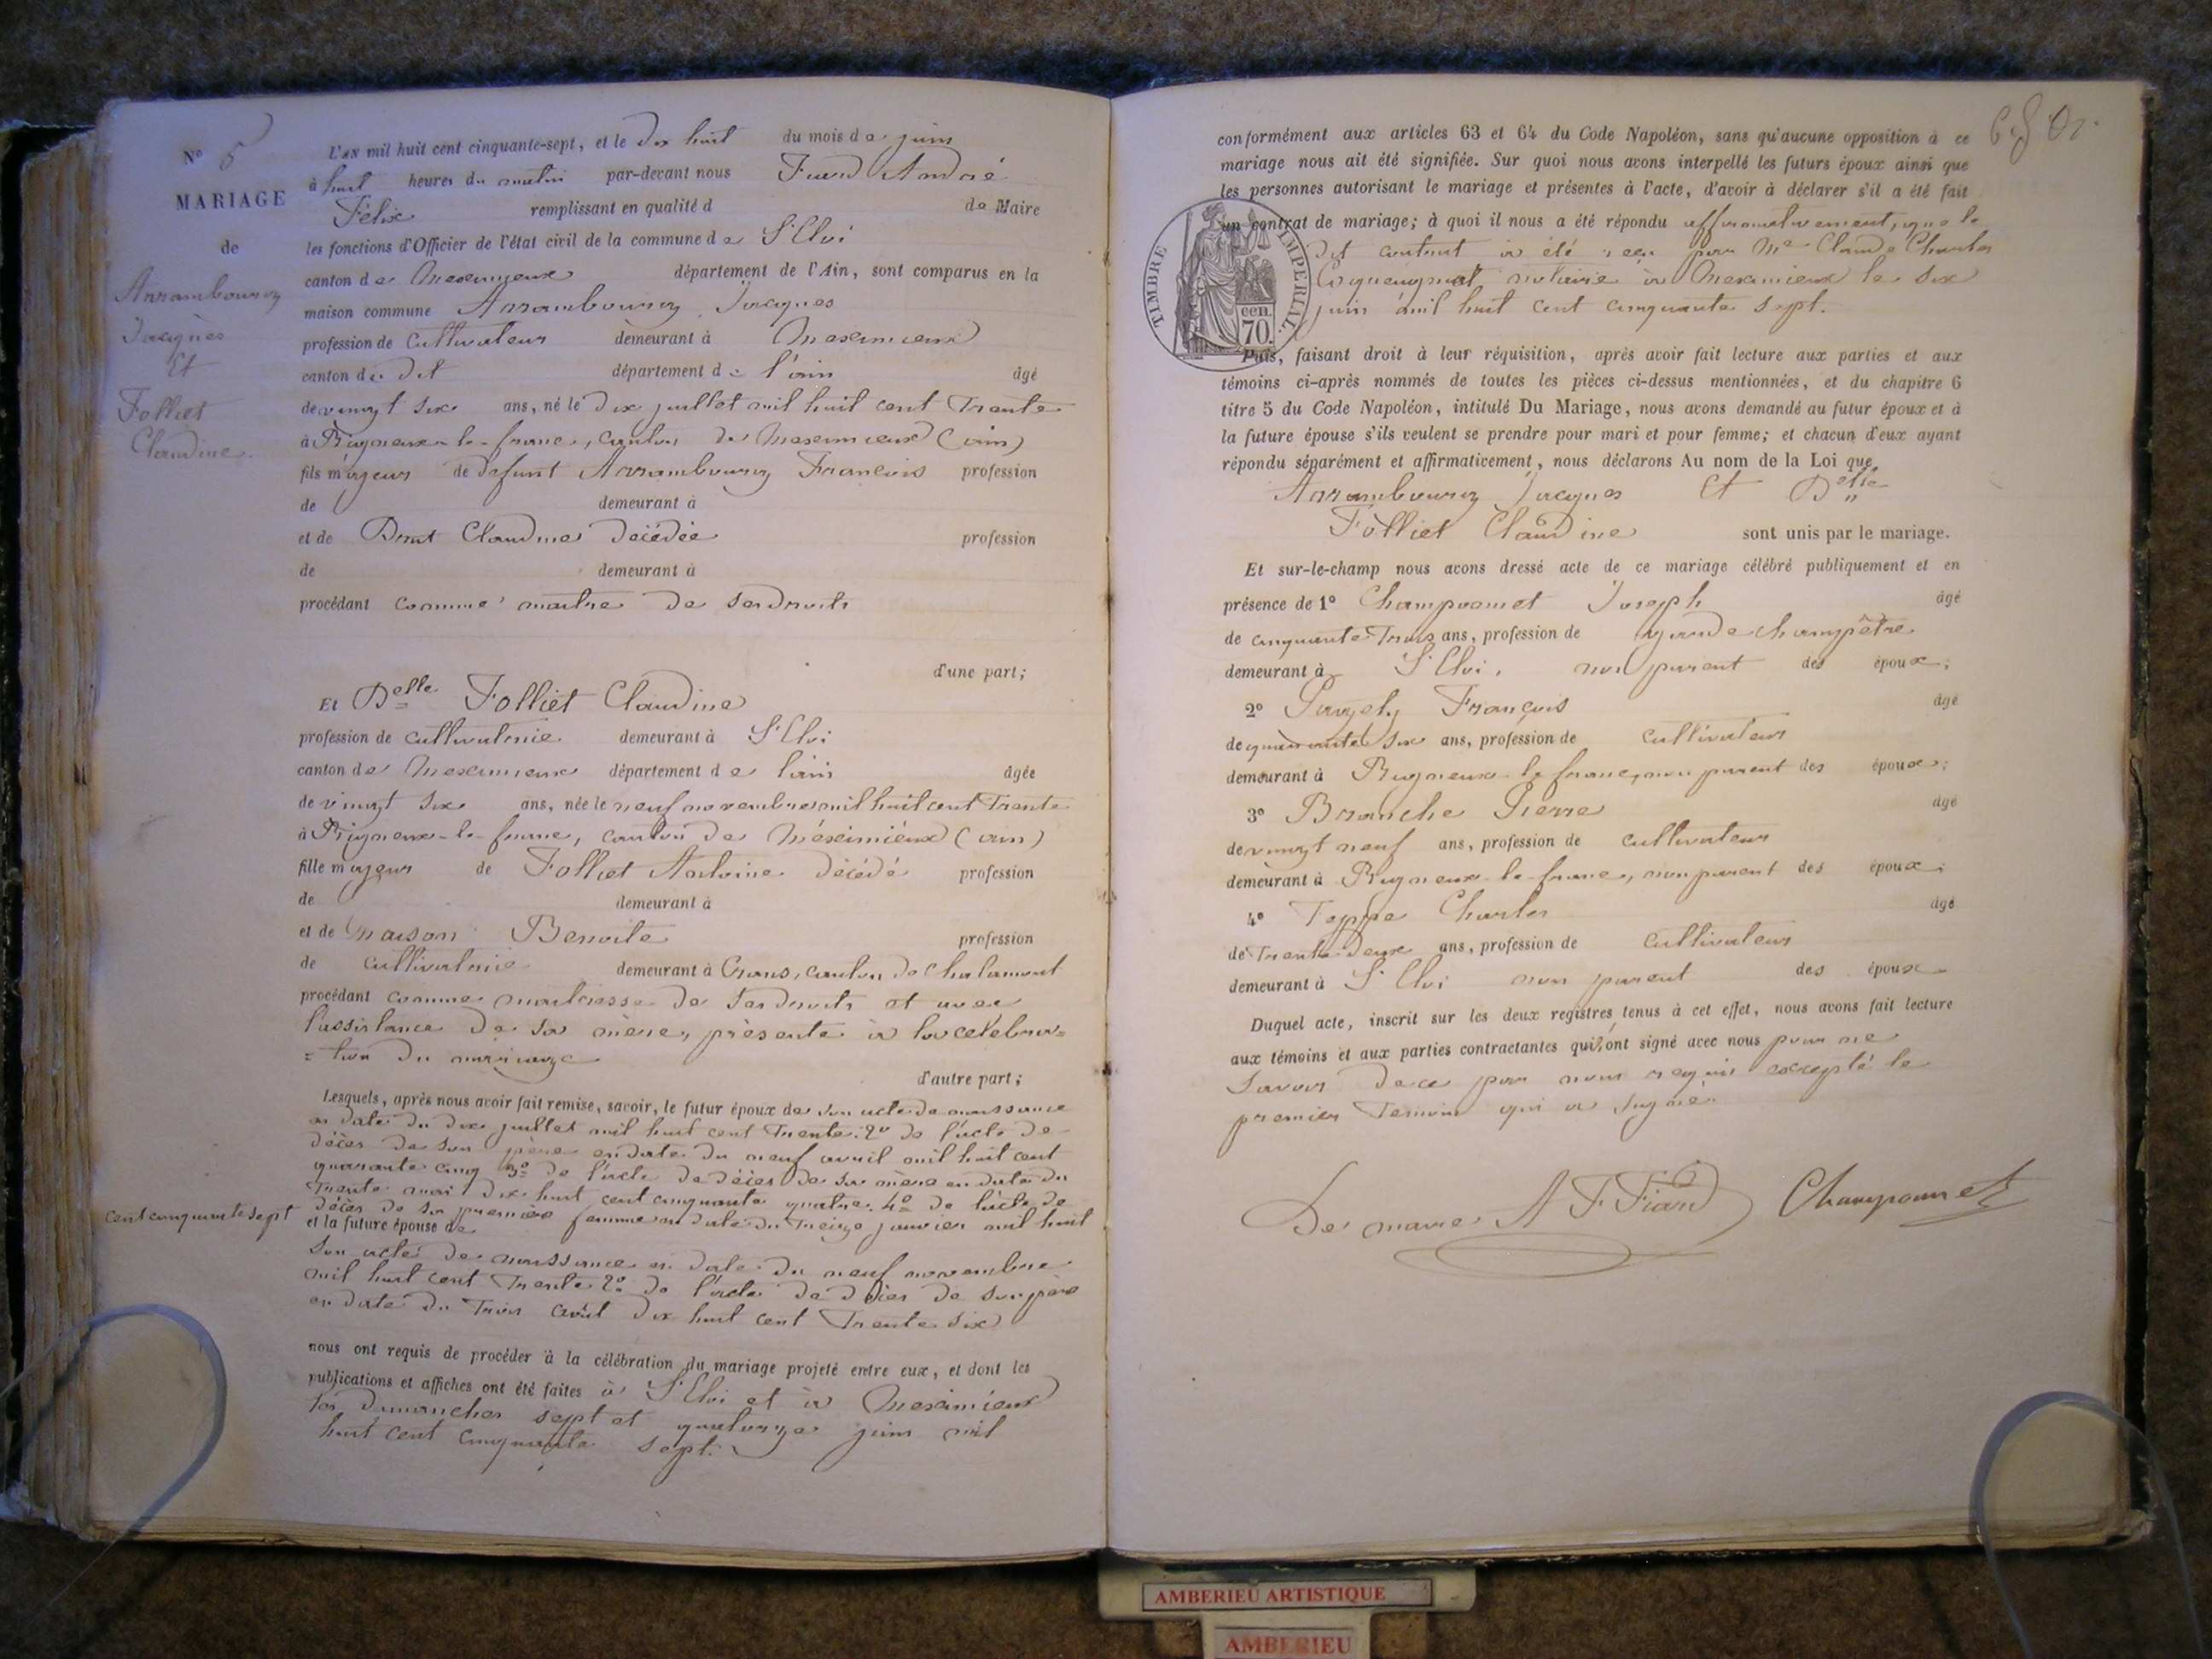 Nº 5
MARIAGE
de
Arrambourg
Jacques
Et
Folliet
Claudine
L'AN mil huit cent cinquante-sept, et le dix huit du mois de juin
à huit heures du matin par-devant nous Fiard André
Félix remplissant en qualité d de Maire
les fonctions d'Officier de l'état civil de la commune de St Eloi
canton de Meximieux département de l'Ain, sont comparus en la
maison commune Arrambourg Jacques
profession de cultivateur demeurant à Meximieux
canton de dit département de l'ain âgé
de vingt six ans, né le dix juillet mil huit cent trente
à Rigneux-le-franc, canton de Meximieux (ain)
fils majeur de défunt Arrambourg François profession
de demeurant à
et de Claudine décédée profession
de demeurant à
procédant comme maitre de ses droits
d'une part;
Et Delle Folliet Claudine
profession de cultivatrice demeurant à St Eloi
canton de Meximieux département de l'ain âgée
de vingt six ans, née le neuf novembre mil huit cent trente
à Rigneux-le-franc, canton de Méximiéux (ain)
fille majeur de Folliet Antoine décédé profession
de demeurant à
et de Maison Benoite profession
de cultivatrice demeurant à Crans, canton de Chalamont
procédant comme maitresse de ses droits et avec
l'assistance de sa mère, présente à la célébra=
=tion du mariage
d'autre part;
Lesquels, après nous avoir fait remise, savoir, le futur époux de son acte de naissance
en date du dix juillet mil huit cent trente. 2º de l'acte de
décès de son père en date du neuf avril mil huit cent
quarante cinq 3º de l'acte de décès de sa mère en date du
trente mai dix huit cent cinquante quatre. 4º de l'acte de
décès de sa première femme en date du treize janvier mil huit
cent cinquante sept
et la future épouse de
son acte de naissance en date du neuf novembre
mil huit cent trente 2º de l'acte de décès de son père
en date du trois août dix huit cent trente six
nous ont requis de procéder à la célébration du mariage projeté entre eux, et dont les
publications et affiches ont été faites à St Eloi et à Meximieux
les dimanches sept et quatorze juin mil
huit cent cinquante sept.
conformément aux articles 63 et 64 du Code Napoléon, sans qu'aucune opposition à ce
mariage nous ait été signifiée. Sur quoi nous avons interpellé les futurs époux ainsi que
les personnes autorisant le mariage et présentes à l'acte, d'avoir à déclarer s'il a été fait
un contrat de mariage; à quoi il nous a été répondu affirmativement, que le
dit contrat a été reçu par Me Claude Charles
notaire à Meximieux le six
juin mil huit cent cinquante sept.
TIMBRE IMPERIAL.
cen.
70.
Puis, faisant droit à leur réquisition, après avoir fait lecture aux parties et aux
témoins ci-après nommés de toutes les pièces ci-dessus mentionnées, et du chapitre 6
titre 5 du Code Napoléon, intitulé Du Mariage, nous avons demandé au futur époux et à
la future épouse s'ils veulent se prendre pour mari et pour femme; et chacun d'eux ayant
répondu séparément et affirmativement, nous déclarons Au nom de la Loi que
Arrambourg Jacques Et Delle
Folliet Claudine sont unis par le mariage.
Et sur-le-champ nous avons dressé acte de ce mariage célébré publiquement et en
présence de 1º Champromet Joseph âgé
de cinquante trois ans, profession de garde champêtre
demeurant à St Eloi, non parent des époux;
2º François âgé
de quarante six ans, profession de cultivateur
demeurant à Rigneux-le-franc, non parent des époux;
3º Branche Pierre âgé
de vingt neuf ans, profession de cultivateur
demeurant à Rigneux-le-franc, non parent des époux;
4º Teppe Charles âgé
de trente deux ans, profession de cultivateur
demeurant à St Eloi non parent des époux
Duquel acte, inscrit sur les deux registres tenus à cet effet, nous avons fait lecture
aux témoins et aux parties contractantes qui ont signé avec nous pour ne
savoir de ce par nous requis excepté le
premier témoin qui a signé.
Le maire A F Fiard Champromet
AMBERIEU ARTISTIQUE
AMBERIEU